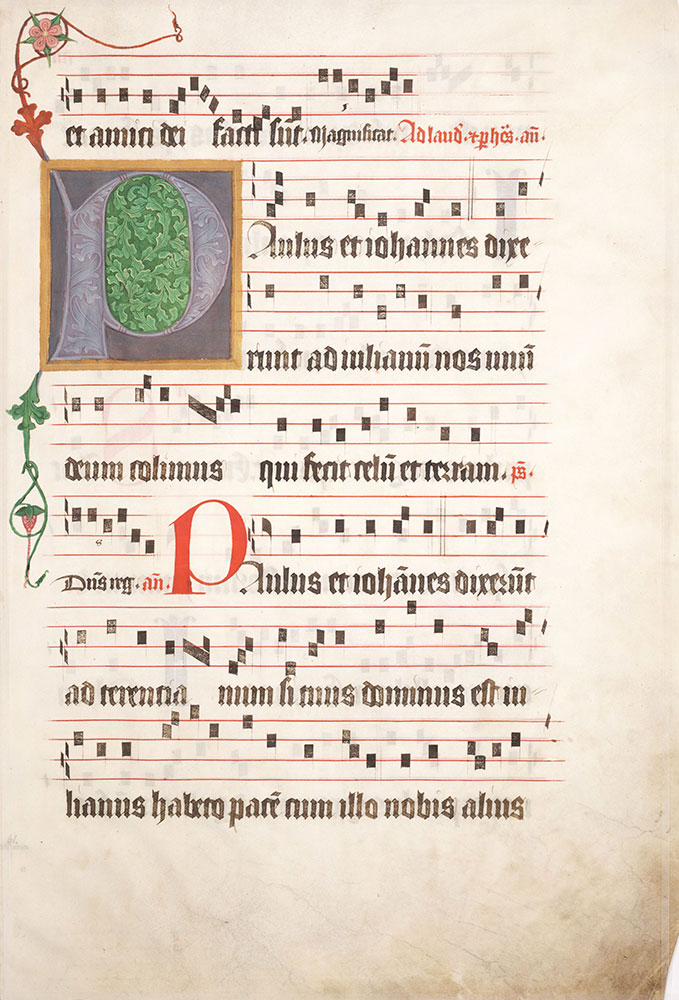 et amici dei facti sūt. Magnificat. Ad laud. et p̲ hōs. añ.
Paulus et iohannes dixe
runt ad iulianū nos unū
deum colimus qui fecit celū et terram. p̄s.
Dñs reg̅. añ. Paulus et iohāñes dixerūt
ad terentia num si tuus dominus est iu
lianus habeto pacē cum illo nobis alius